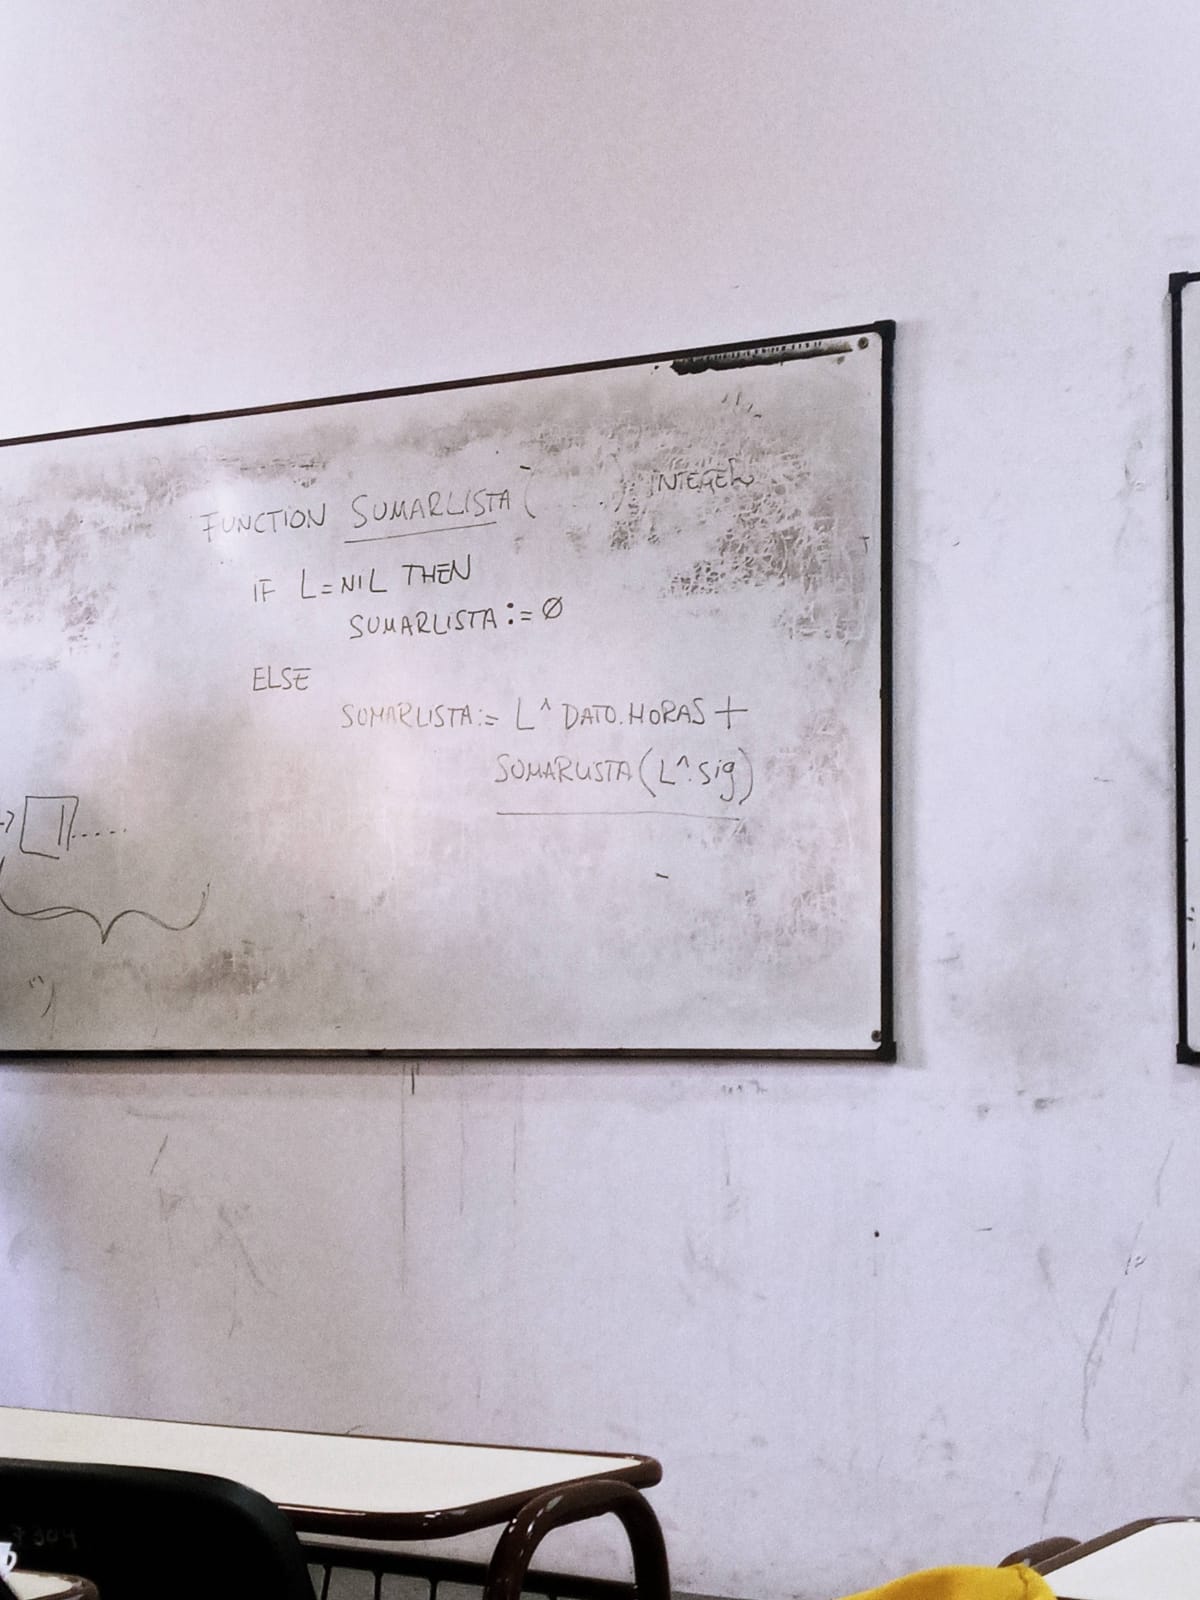 FUNCTION SUMARLISTA ( ) INTEGER
IF L=NIL THEN
SUMARLISTA := Ø
ELSE
SUMARLISTA := L^ DATO.HORAS +
SUMARLISTA (L^.sig)